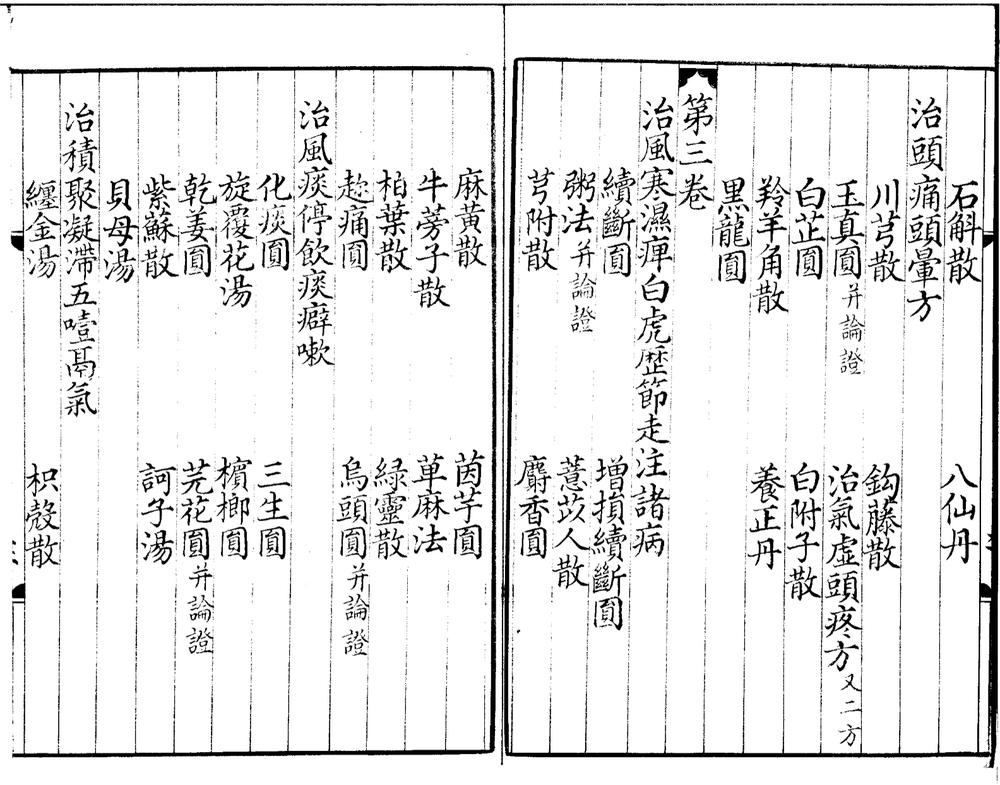 石斛散　八仙丹
治頭痛頭暈方
川芎散　鈎藤散
玉真圓并論證　治氣虛頭疼方又二方
白芷圓　白附子散
羚羊角散　養正丹
黑龍圓
第三卷
治風寒濕痺白虎歷節走注諸病
續斷圓　增損續斷圓
粥法并論證　薏苡人散
芎附散　麝香圓
麻黃散　茵芋圓
牛蒡子散　草麻法
柏葉散　綠靈散
趂痛圓　烏頭圓并論證
治風痰停飲痰癖嗽
化痰圓　三生圓
旋覆花湯　檳榔圓
乾姜圓　芫花圓并論證
紫蘇散　訶子湯
貝母湯
治積聚凝滯五噎鬲氣
纏金湯　枳殼散